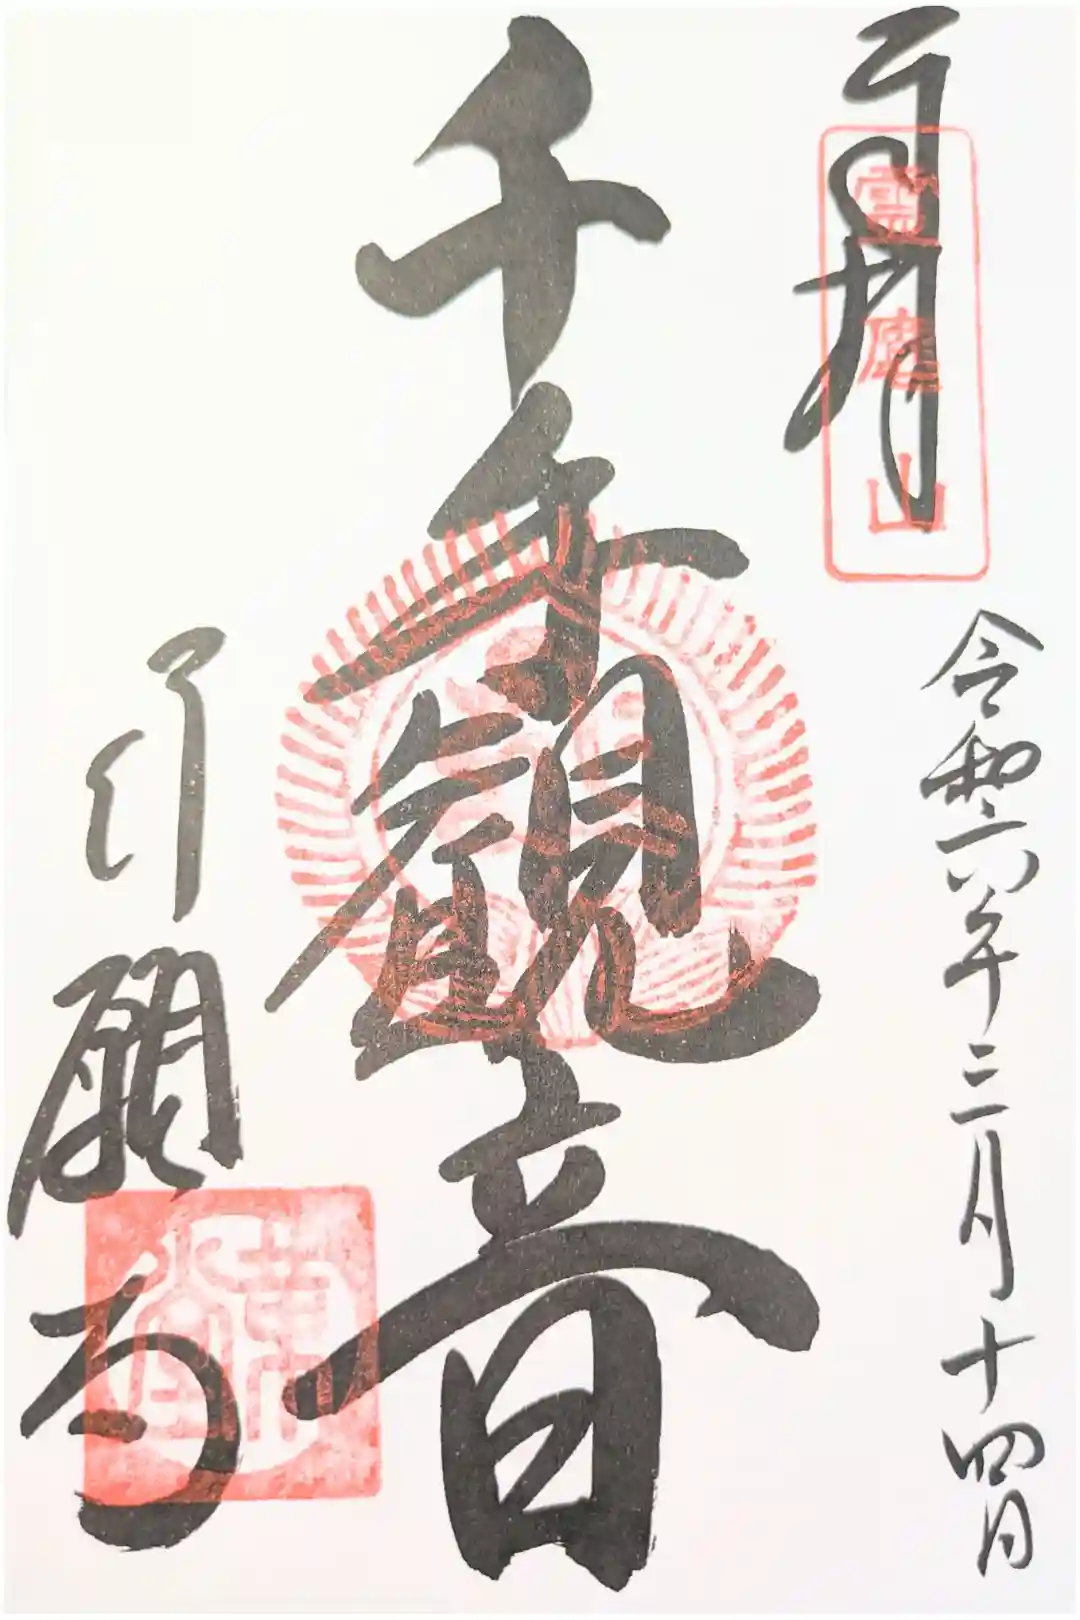 奉拝
霊麀山
令和六年三月十四日
千手観音
行願寺